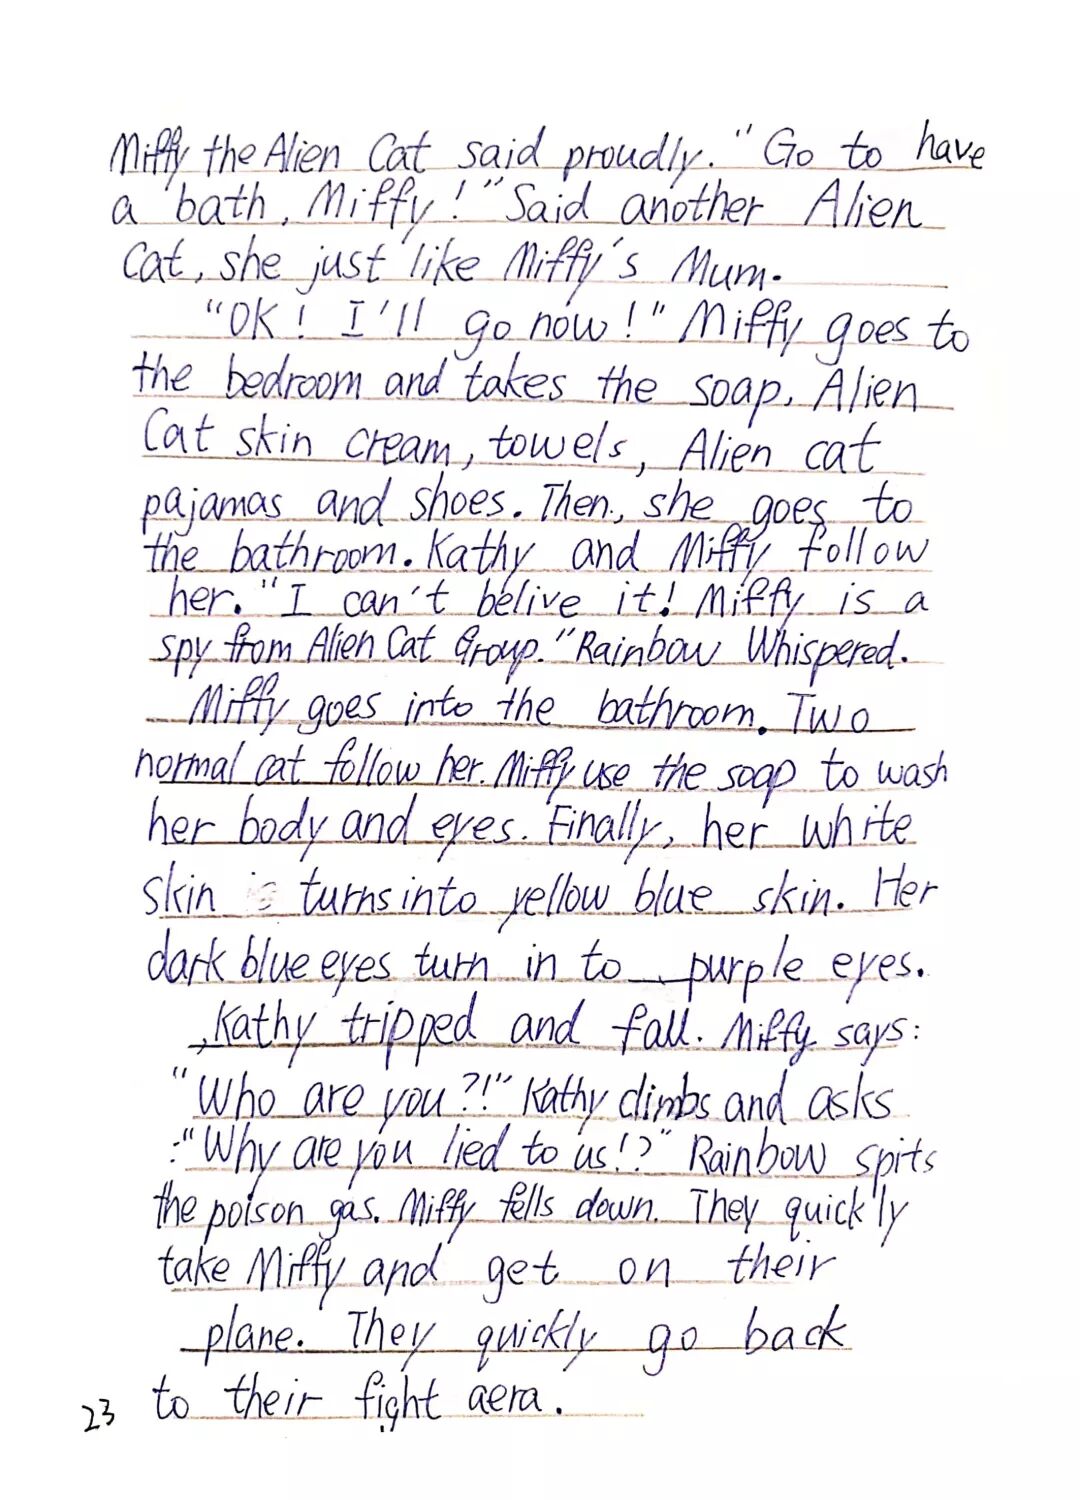 Miffy the Alien Cat said proudly. "Go to have
a bath, Miffy!" Said another Alien
Cat, she just like Miffy's Mum.
"OK! I'll go now!" Miffy goes to
the bedroom and takes the soap, Alien
Cat skin cream, towels, Alien cat
pajamas and shoes. Then, she goes to
the bathroom. Kathy and Miffy follow
her. "I can't belive it! Miffy is a
spy from Alien Cat Group." Rainbow Whispered.
Miffy goes into the bathroom. Two
normal cat follow her. Miffy use the soap to wash
her body and eyes. Finally, her white
skin turns into yellow blue skin. Her
dark blue eyes turn in to purple eyes.
Kathy tripped and fall. Miffy says:
"Who are you?!" Kathy climbs and asks
:"Why are you lied to us!?" Rainbow spits
the poison gas. Miffy fells down. They quick'ly
take Miffy and get on their
plane. They quickly go back
to their fight aera.
23